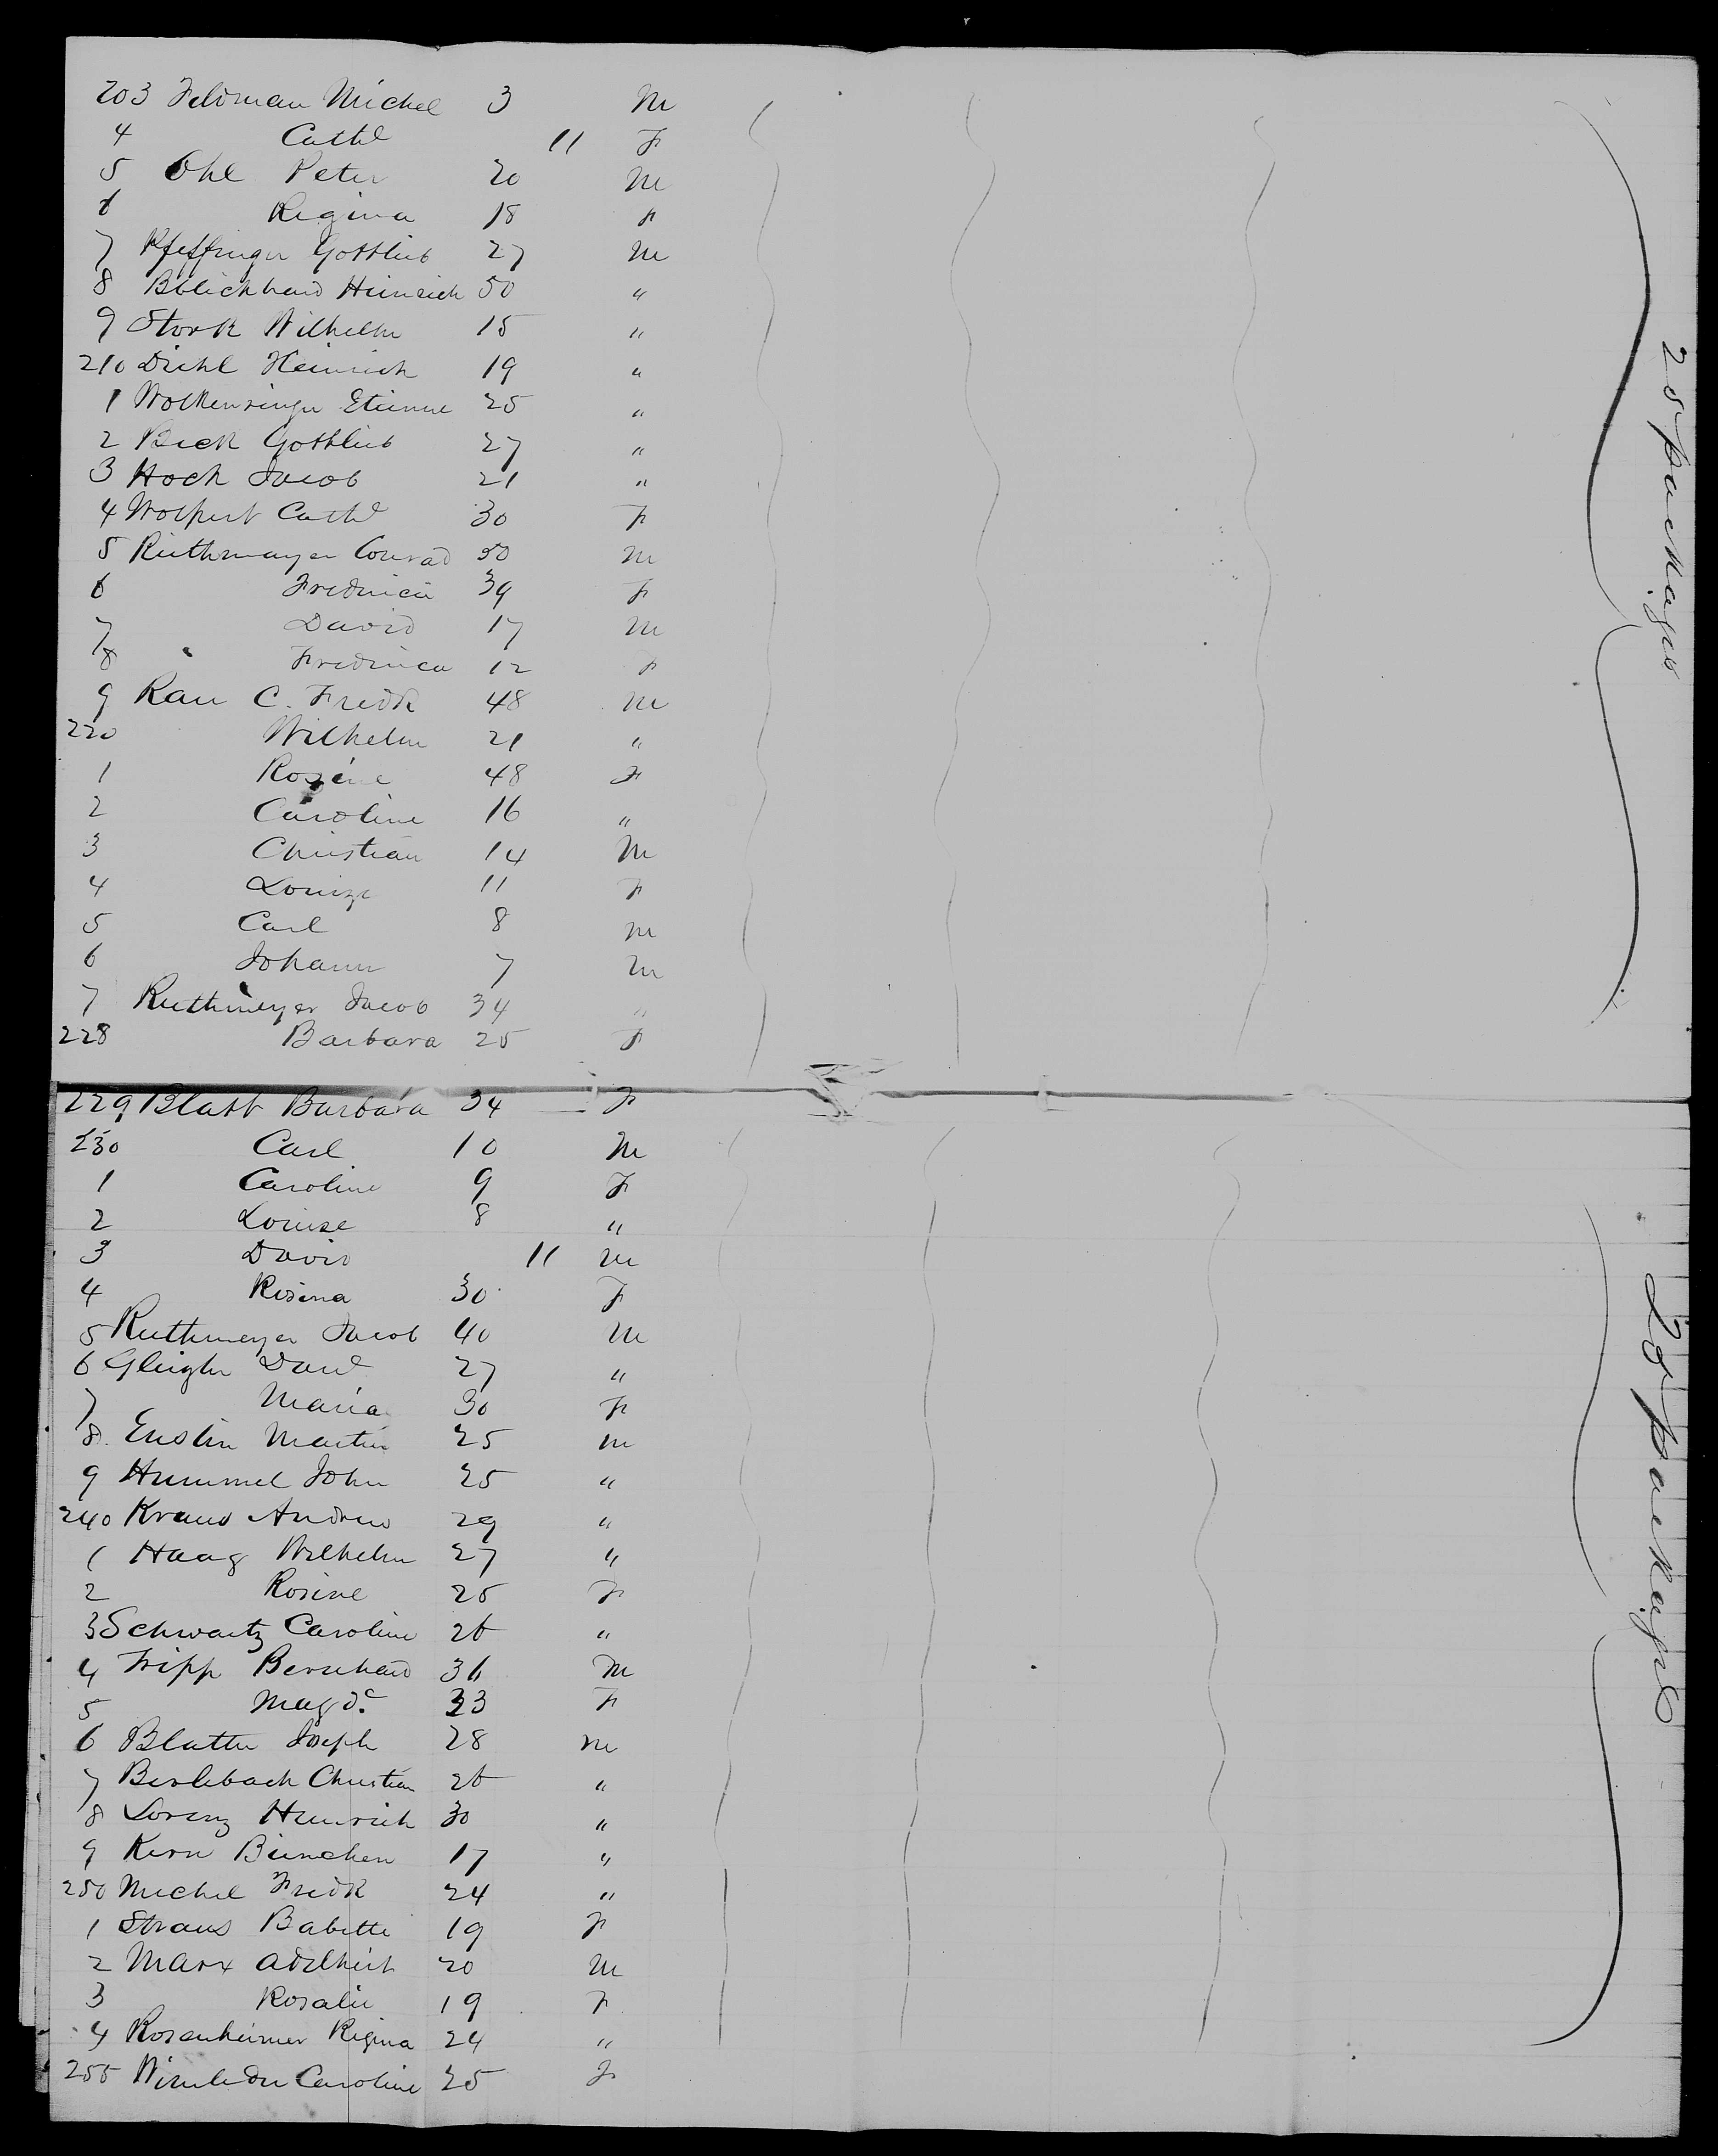 203 Feldman Michel 3 M
4 Cathe 11 F
5 Ohl Peter 20 M
6 Regina 18 F
7 Pfeffinger Gottlieb 27 M
8 Heinrich 50 "
9 Stork Wilhelm 15 "
210 Diehl Heinrich 19 "
1 Etienne 25 "
2 Beck Gottlieb 27 "
3 Hoch Jacob 21 "
4 Wolpert Cathe 30 F
5 Ruthmayer Conrad 50 M
6 Fredricu 39 F
7 David 17 M
8 Fredrica 12 F
9 Rau C. Fredk 48 M
220 Wilhelm 21 "
1 Rosine 48 F
2 Caroline 16 "
3 Christian 14 M
4 Louize 11 F
5 Carl 8 M
6 Johann 7 M
7 Ruthmeyer Jacob 34 "
228 Barbara 25 F
25 packages
229 Blatt Barbara 34 F
230 Carl 10 M
1 Caroline 9 F
2 Louise 8 "
3 David 11 M
4 Rosina 30 F
5 Ruthmeyer Jacob 40 M
6 Gleigler Danl 27 "
7 Maria 30 F
8 Enslin Martin 25 M
9 Hummel John 25 "
240 Kraus Andrew 29 "
1 Haag Wilhelm 27 "
2 Rosine 25 F
3 Schwartz Caroline 26 "
4 Tripp Bernhard 36 M
5 Magdc. 33 F
6 Blatter Joseph 28 M
7 Berlebach Christian 26 "
8 Lorenz Heinrich 30 "
9 Kern Bienchen 17 "
250 Michel Fredk 24 "
1 Straus Babette 19 F
2 Marx Adelheit 20 M
3 Rosalie 19 F
4 Rosenheimer Regina 24 "
255 Caroline 25 F
28 packages